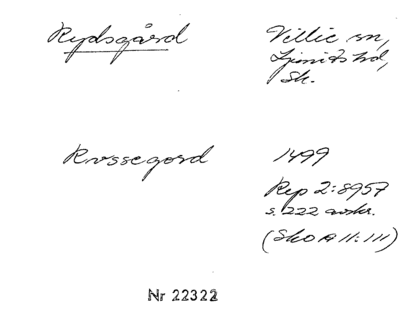 Rydsgård
Villie sn,
Ljunits hd,
Sk.
Rwssegord
1499
Rep 2:8957
s. 222 avskr.
(Sko A II:III)
Nr 22322